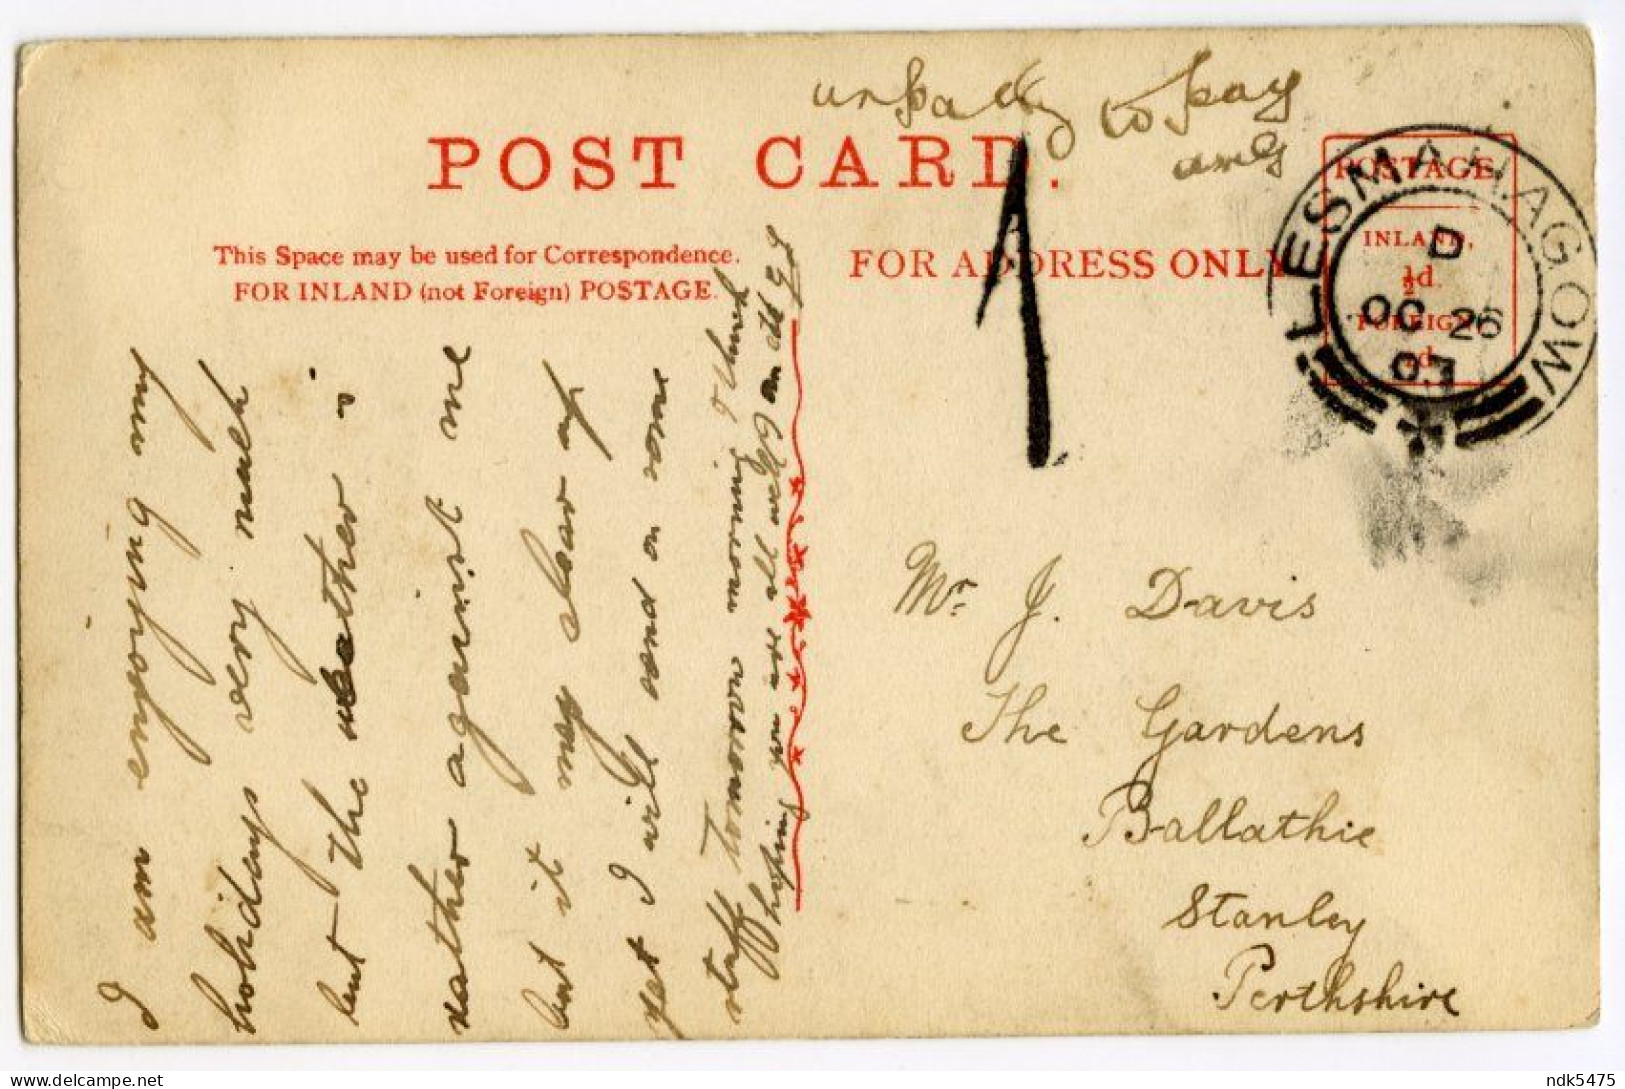 POST CARD.
This Space may be used for Correspondence.
FOR INLAND (not Foreign) POSTAGE.
FOR ADDRESS ONLY
to pay
1
POSTAGE.
INLAND,
½d.
FOREIGN
1d.
LESMAHAGOW
D
OC 26
03
I am enjoying my
holidays very much
but the weather is
rather against me
but it may clear up
yet I will send on some
stuff tomorrow morning I think
hoping you are all well
Mr. J. Davis
The Gardens
Ballathie
Stanley
Perthshire
delcampe.net
ndk5475